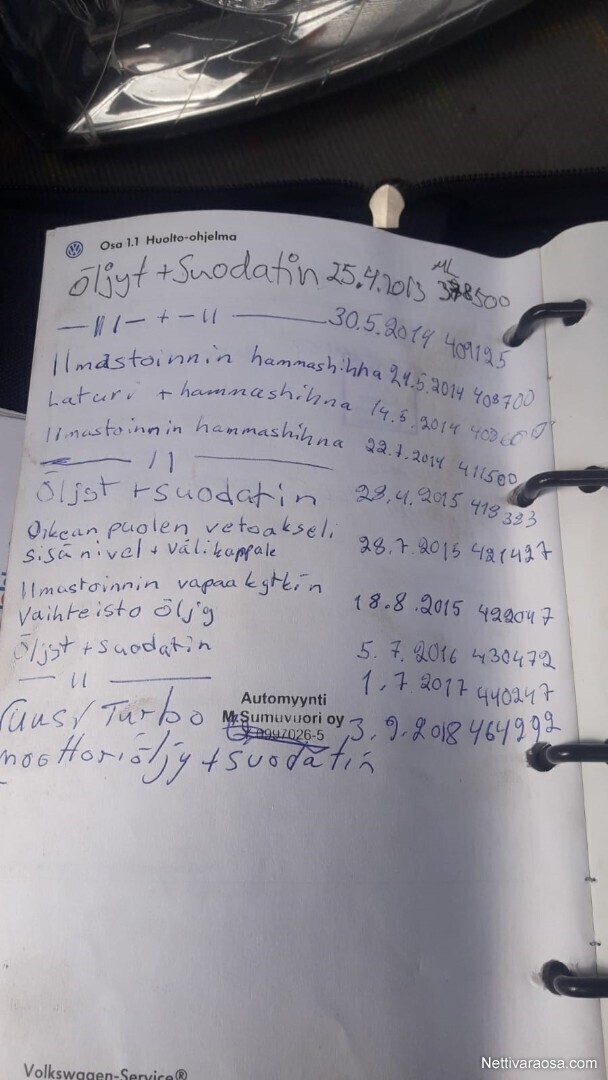 Osa 1.1 Huolto-ohjelma
Öljyt + Suodatin 25.4.2013 378500
— 11 1 — + — 11 ——— 30.5.2014 409125
Ilmastoinnin hammashihna 24.5.2014 408700
Laturi + hammashihna 14.5.2014
Ilmastoinnin hammashihna 22.7.2014 411500
— 11 ———
Öljyt + suodatin 28.4.2015 418333
Oikean puolen vetoakseli
sisänivel + välikappale 28.7.2015 421427
Ilmastoinnin vapaakytkin
Vaihteisto öljy 18.8.2015 422047
Öljyt + suodatin 5.7.2016 430472
— 11 ——— 1.7.2017 440247
Uusi Turbo 3.9.2018 464292
moottoriöljy + suodatin
Automyynti
M.Sumuvuori oy
0997026-5
Volkswagen-Service®
Nettivaraosa.com